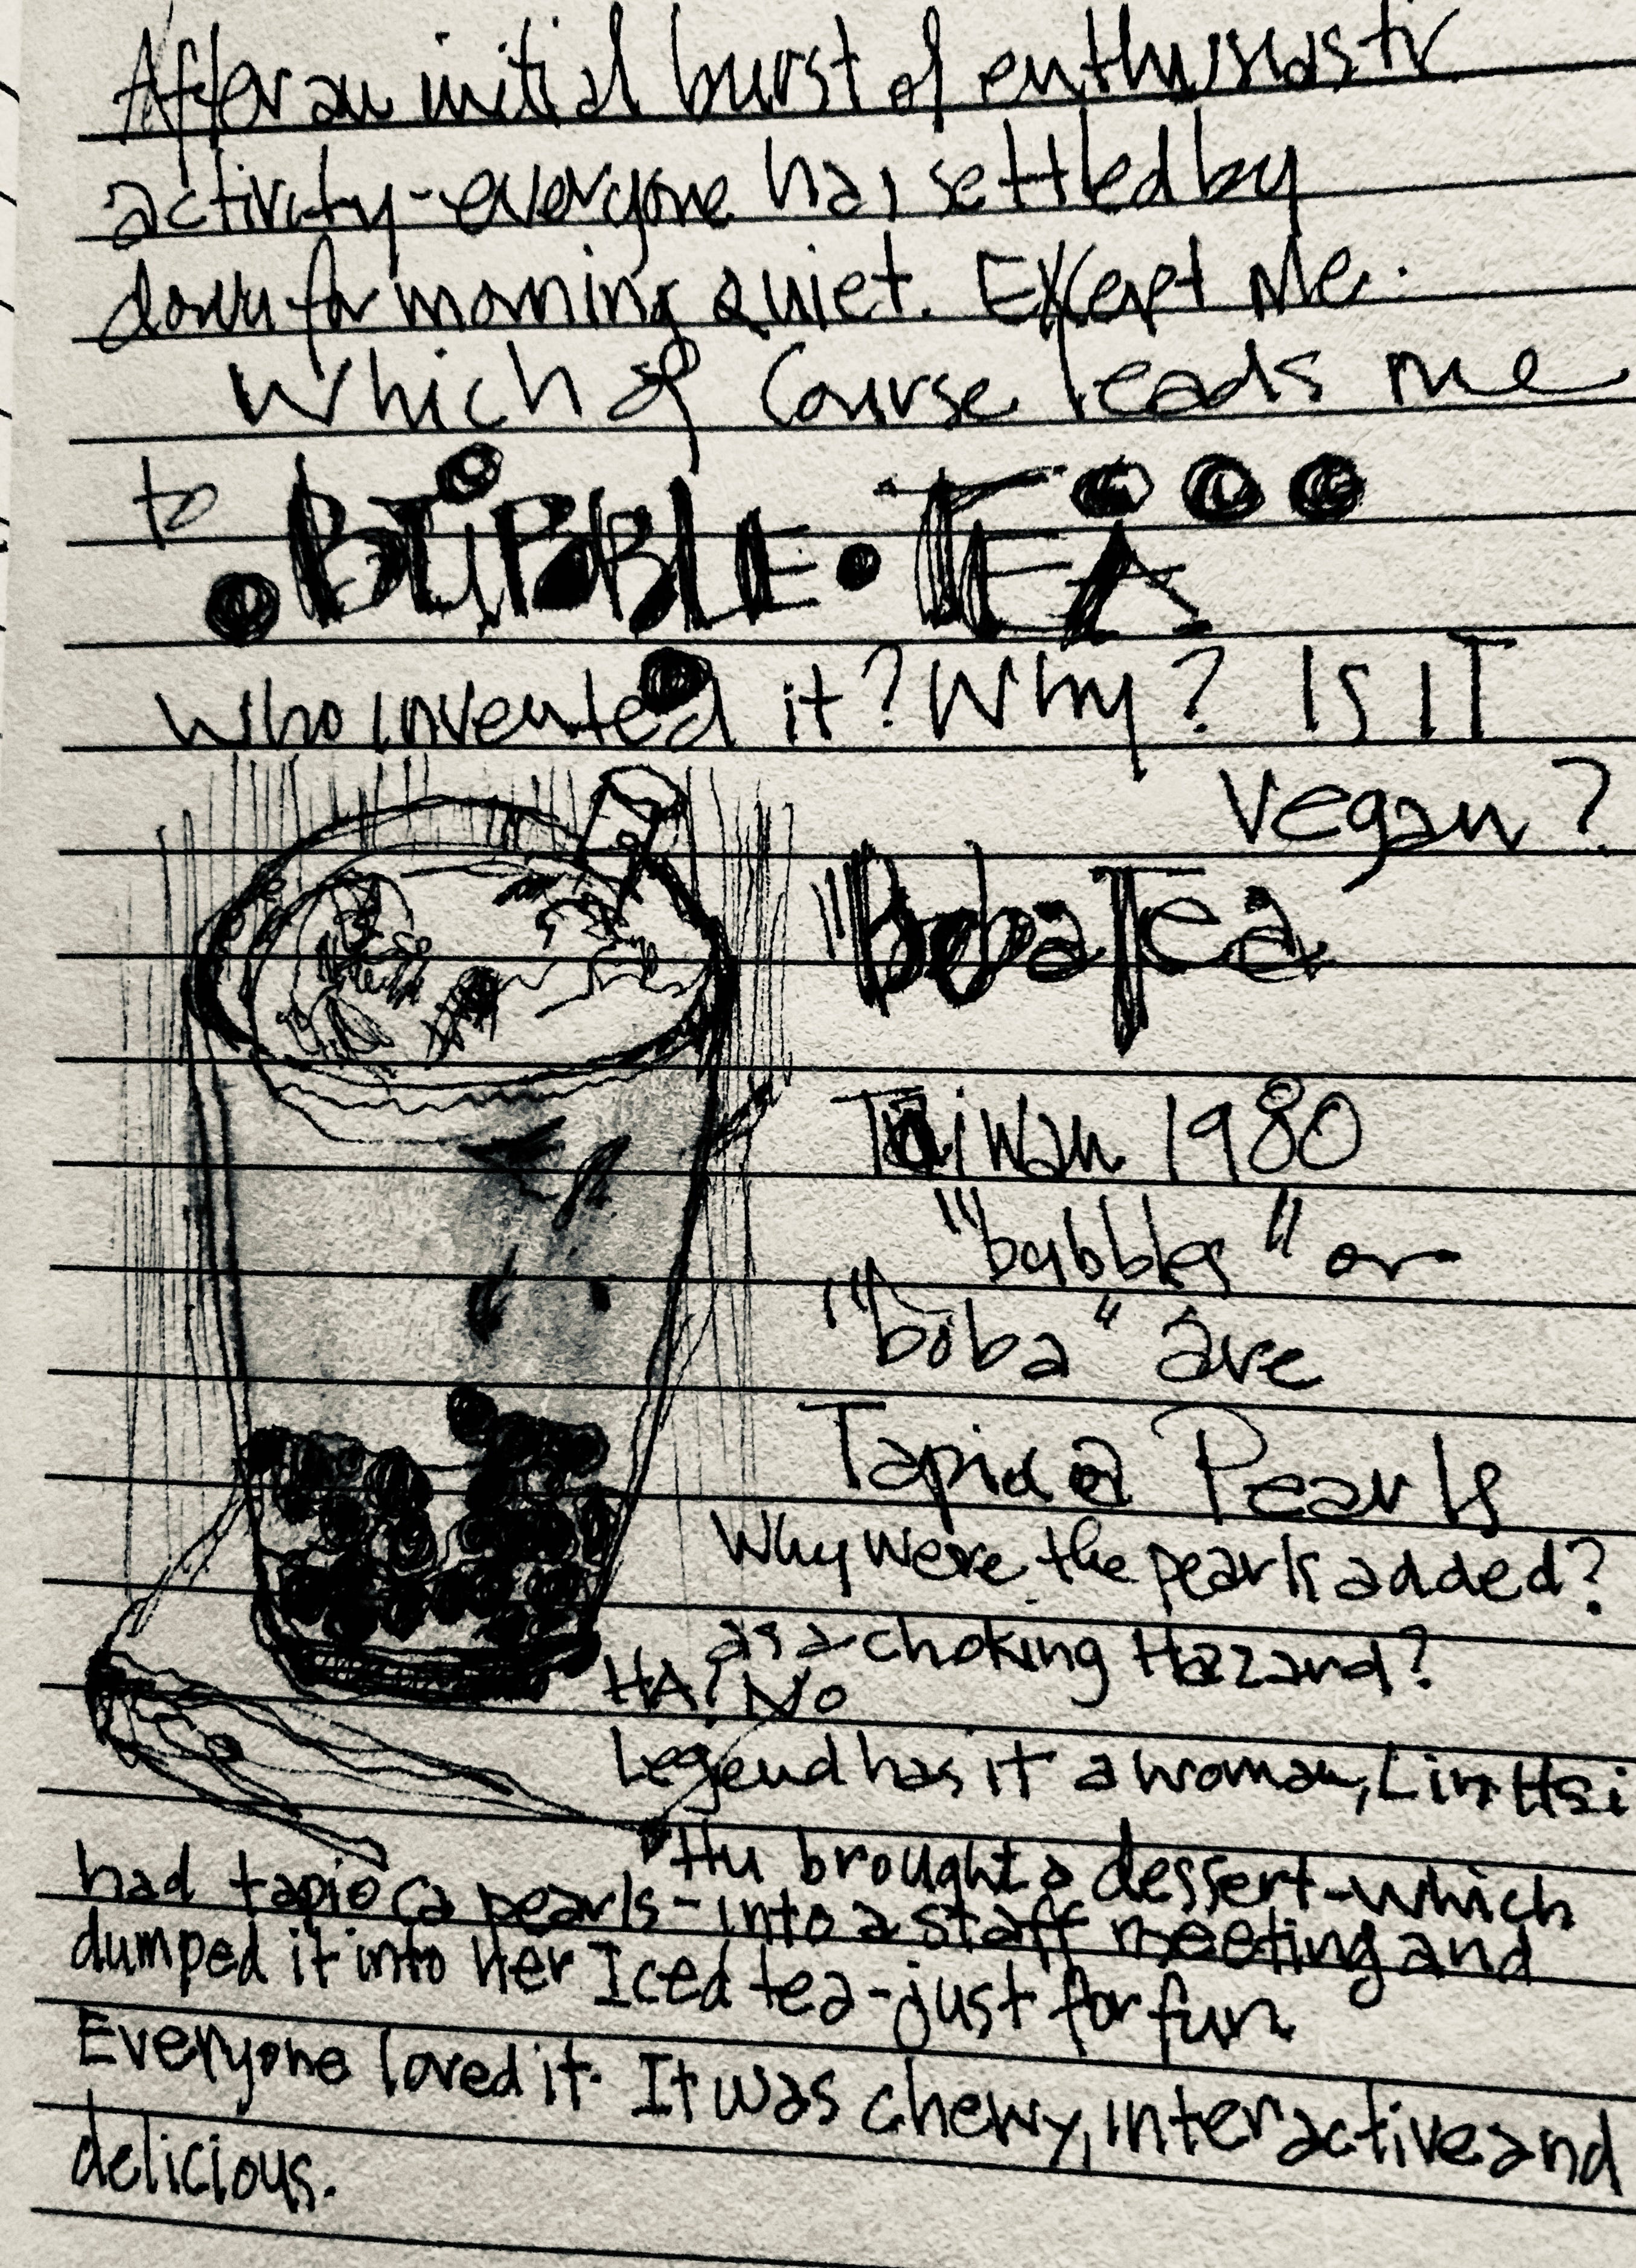 After an initial burst of enthusiastic
activity-everyone has settled by
down for morning quiet. Except Me.
Which of Course leads me
to BUBBLE • TEA
Who invented it? Why? IS IT
Vegan?
"Boba Tea
Taiwan 1980
"bubbles" or
"boba" are
Tapioca Pearls
Why were the pearls added?
as a choking Hazzard?
HA! No
Legend has it a woman, Lin Hsi
Hu brought a dessert-which
had tapioca pearls-into a staff meeting and
dumped it into Her Iced tea-just for fun
Everyone loved it. It was chewy, interactive and
delicious.